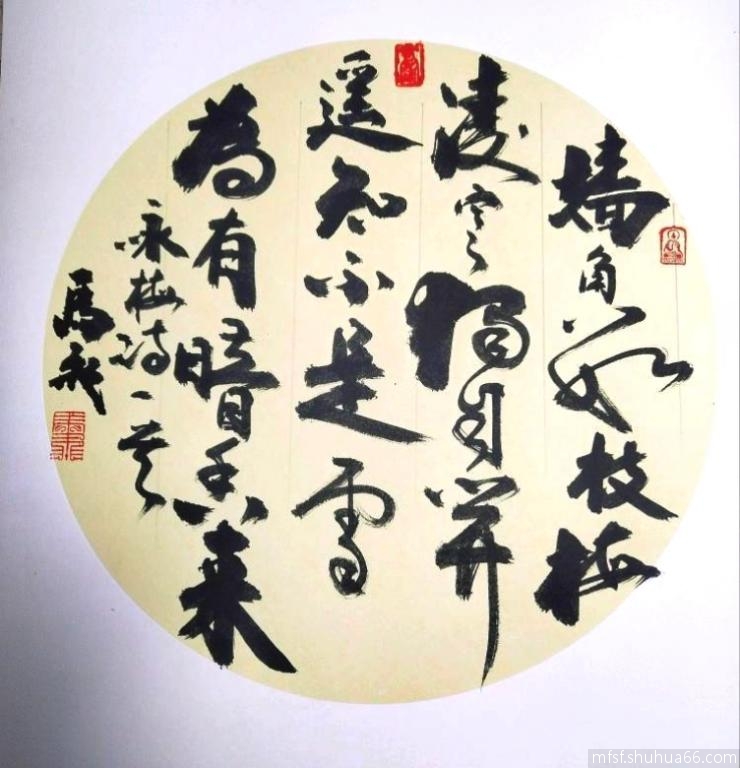 墙角数枝梅
凌寒独自开
遥知不是雪
為有暗香来
咏梅诗一首
馬飛
mfsf.shuhua66.com